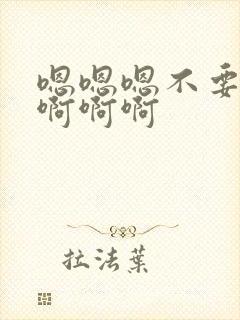 嗯嗯嗯不要
啊啊啊
拉法葉